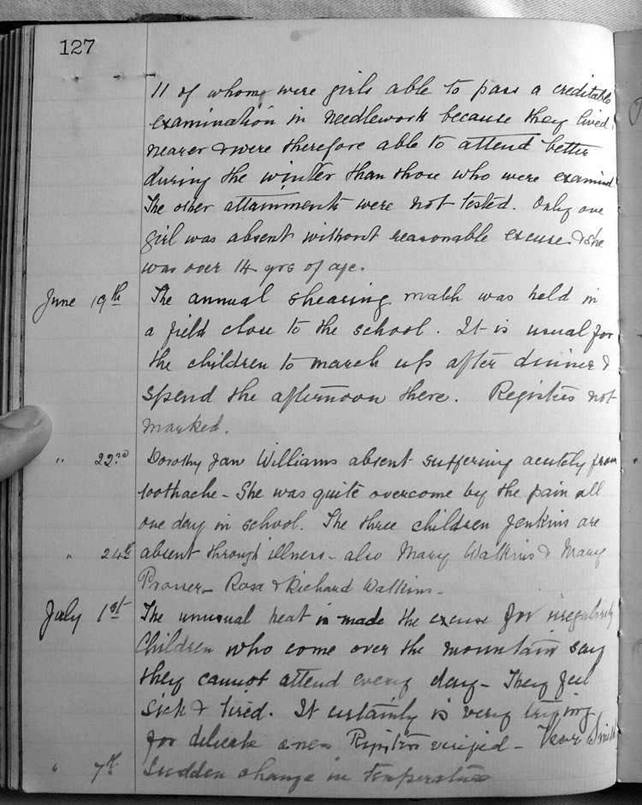 127
11 of whom were girls able to pass a creditable
examination in Needlework because they lived
nearer & were therefore able to attend better
during the winter than those who were examined
The other attainments were not tested. Only one
girl was absent without reasonable excuse & she
was over 14 yrs of age.
June 19th The annual shearing match was held in
a field close to the school. It is usual for
the children to march up after dinner &
spend the afternoon there. Registers not
marked.
" 22nd Dorothy Jan Williams absent suffering acutely from
toothache - She was quite overcome by the pain all
one day in school. The three children Jenkins are
" 24th absent through illness - also Mary Watkins & Mary
Prosser - Rosa & Richard Watkins -
July 1st The unusual heat is made the excuse for irregularity
Children who come over the mountain say
they cannot attend every day - They feel
sick & tired. It certainly is very trying
for delicate ones Registers verified -
" 7th Sudden change in temperature